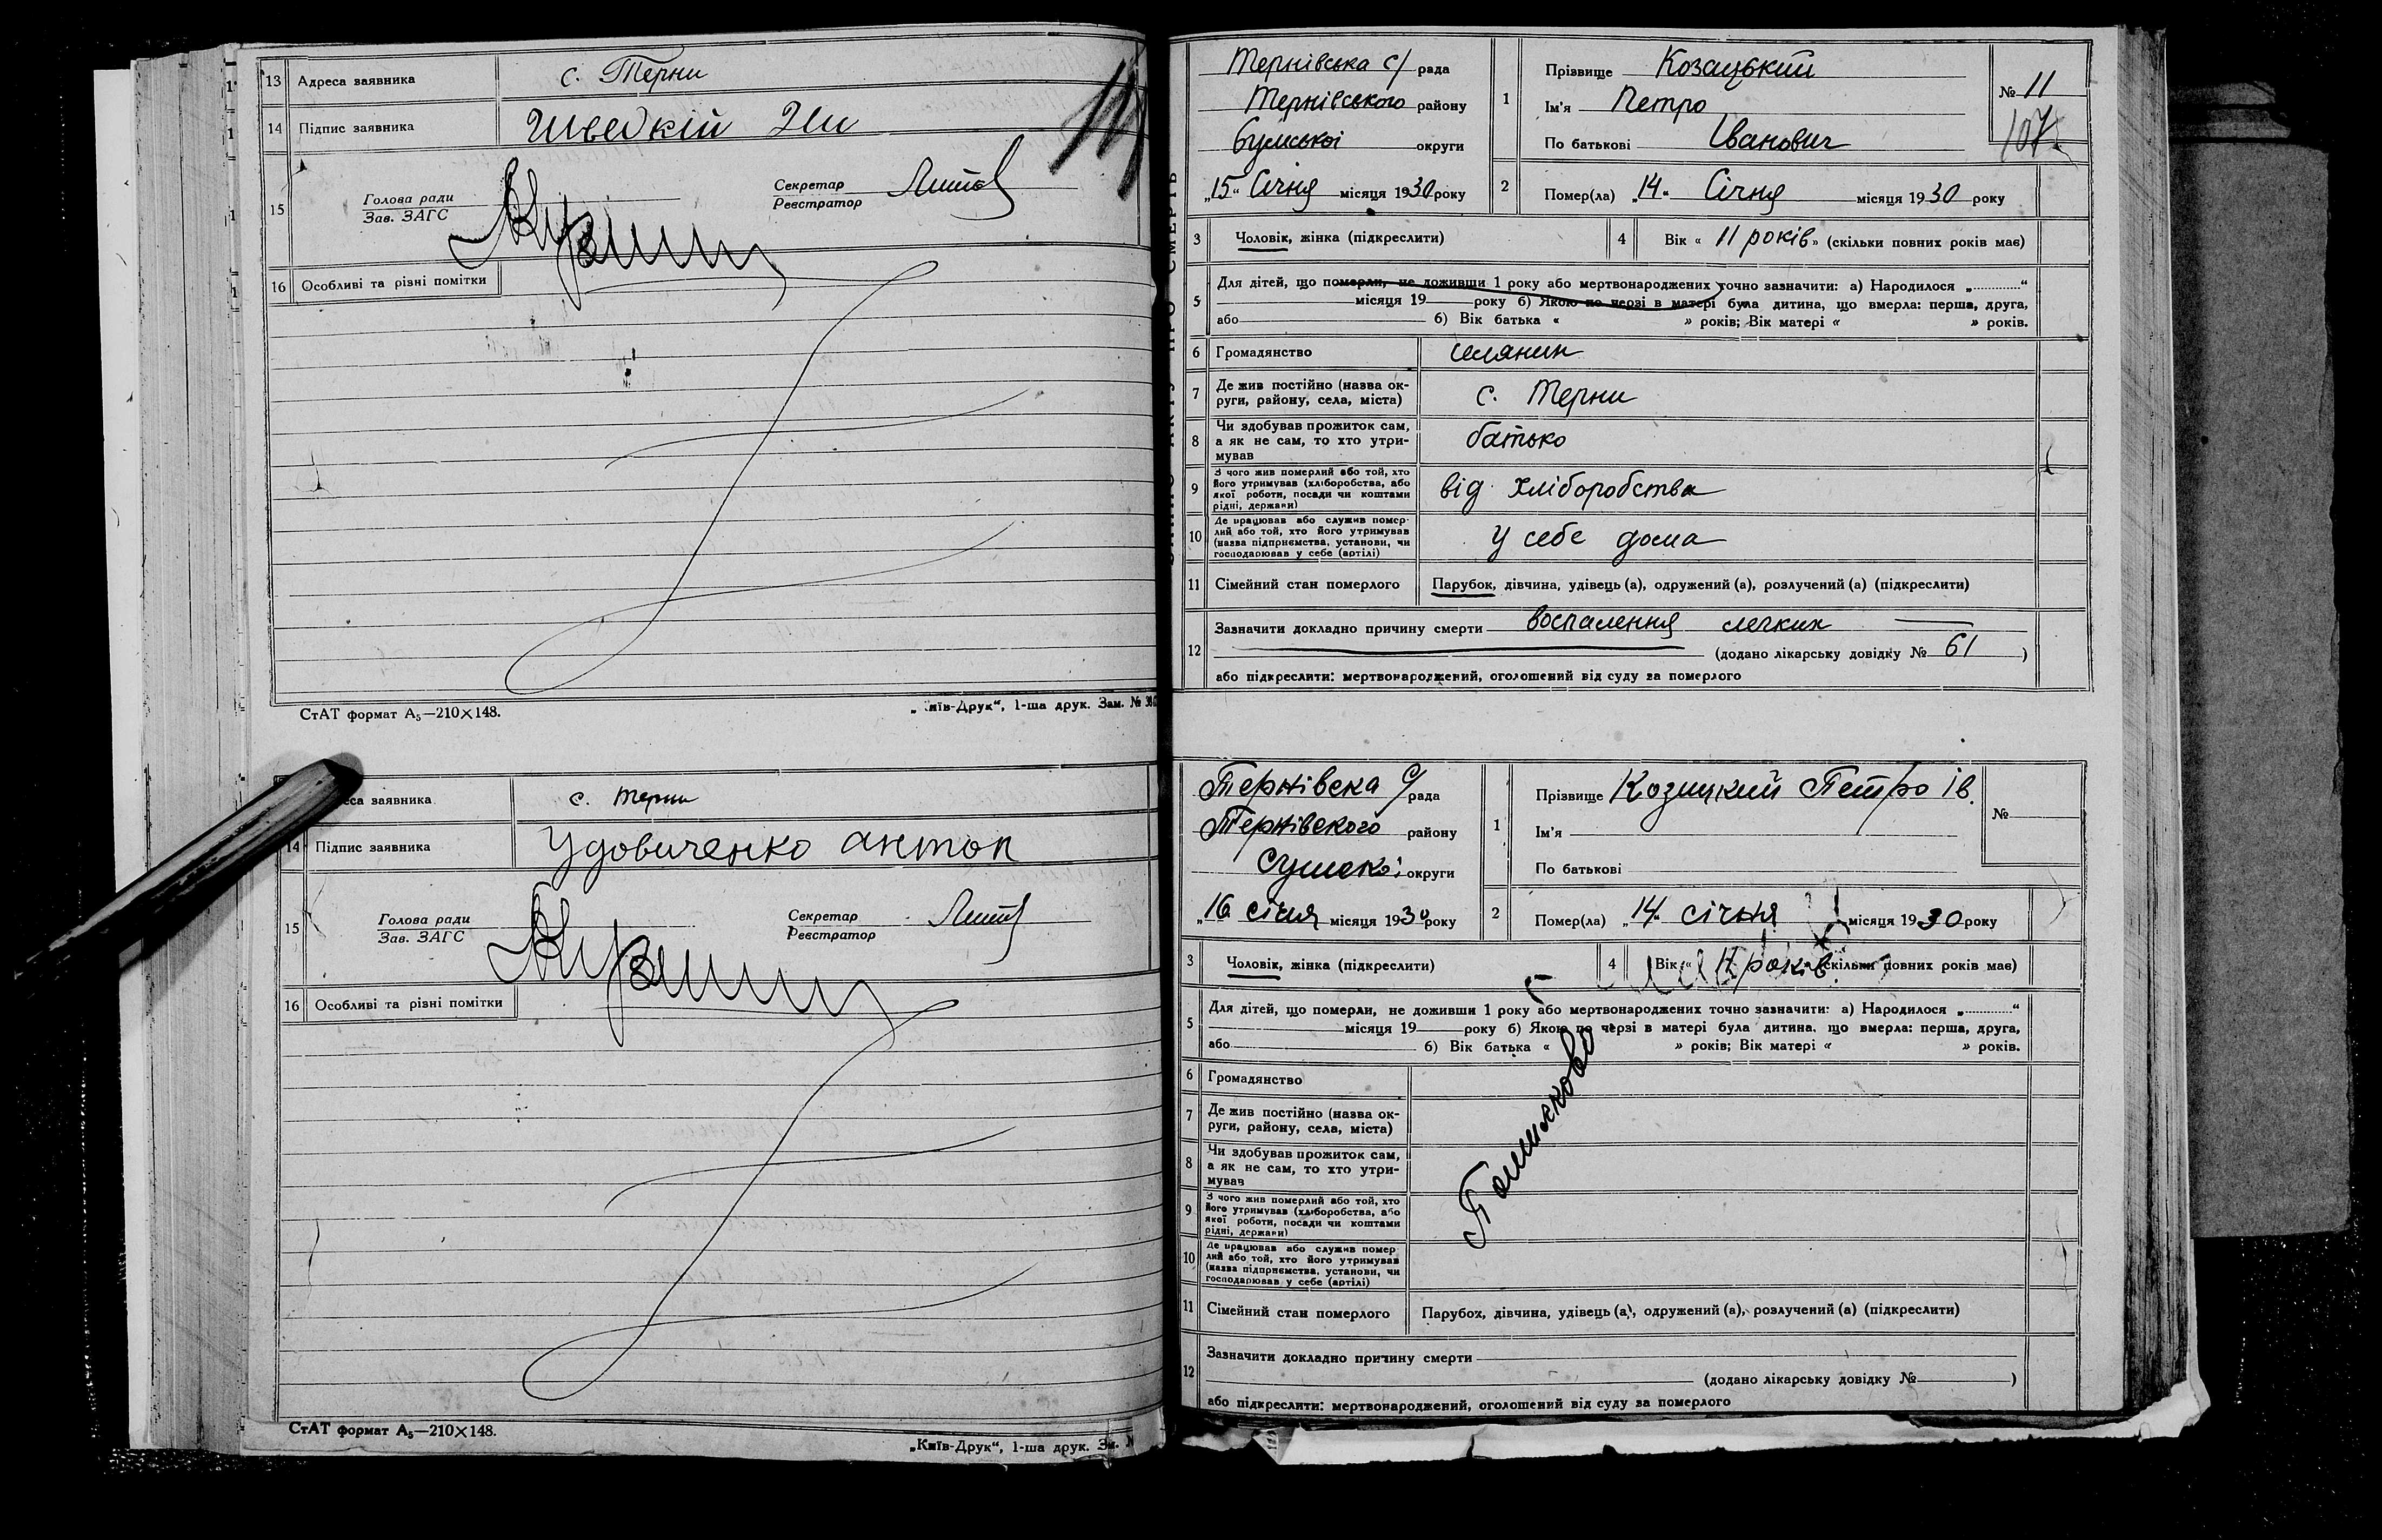 13 Адреса заявника с. Терни
14 Підпис заявника Шведкій
15 Голова ради
Зав. ЗАГС
Секретар
Реєстратор
16 Особливі та різні помітки
СтАТ формат А₅—210×148.
„Київ-Друк“, 1-ша друк. Зам. №
Адреса заявника с. Терни
14 Підпис заявника Удовиченко Антон
15 Голова ради
Зав. ЗАГС
Секретар
Реєстратор
16 Особливі та різні помітки
СтАТ формат А₅—210×148.
„Київ-Друк“, 1-ша друк. Зам.
Тернівська с/ рада
Тернівського району
Сумської округи
„15“ Січня місяця 1930 року
1 Прізвище Козацький
Ім'я Петро
По батькові Іванович
№ 11
107
2 Помер(ла) „14“ Січня місяця 1930 року
3 Чоловік, жінка (підкреслити)
4 Вік « 11 років » (скільки повних років має)
5 Для дітей, що померли, не доживши 1 року або мертвонароджених точно зазначити: а) Народилося „............“
місяця 19 року б) Якою по черзі в матері була дитина, що вмерла: перша, друга,
або б) Вік батька « » років; Вік матері « » років.
6 Громадянство селянин
7 Де жив постійно (назва ок-
руги, району, села, міста) с. Терни
8 Чи здобував прожиток сам,
а як не сам, то хто утри-
мував батько
9 З чого жив померлий або той, хто
його утримував (хліборобства, або
якої роботи, посади чи коштами
рідні, держави) від хліборобства
10 Де працював або служив помер-
лий або той, хто його утримував
(назва підприємства, установи, чи
господарював у себе (артілі) у себе дома
11 Сімейний стан померлого Парубок, дівчина, удівець (а), одружений (а), розлучений (а) (підкреслити)
12 Зазначити докладно причину смерти воспалення легких
(додано лікарську довідку № 61 )
або підкреслити: мертвонароджений, оголошений від суду за померлого
Тернівска с/ рада
Тернівского району
Сумскоі округи
„16“ січня місяця 1930 року
1 Прізвище Козицкий Петро Ів.
Ім'я
По батькові
№
2 Помер(ла) „14“ січня місяця 1930 року
3 Чоловік, жінка (підкреслити)
4 Вік « 11 років » (скільки повних років має)
5 Для дітей, що померли, не доживши 1 року або мертвонароджених точно зазначити: а) Народилося „............“
місяця 19 року б) Якою по черзі в матері була дитина, що вмерла: перша, друга,
або б) Вік батька « » років; Вік матері « » років.
Помилково
6 Громадянство
7 Де жив постійно (назва ок-
руги, району, села, міста)
8 Чи здобував прожиток сам,
а як не сам, то хто утри-
мував
9 З чого жив померлий або той, хто
його утримував (хліборобства, або
якої роботи, посади чи коштами
рідні, держави)
10 Де працював або служив помер-
лий або той, хто його утримував
(назва підприємства, установи, чи
господарював у себе (артілі)
11 Сімейний стан померлого Парубок, дівчина, удівець (а), одружений (а), розлучений (а) (підкреслити)
12 Зазначити докладно причину смерти
(додано лікарську довідку № )
або підкреслити: мертвонароджений, оголошений від суду за померлого